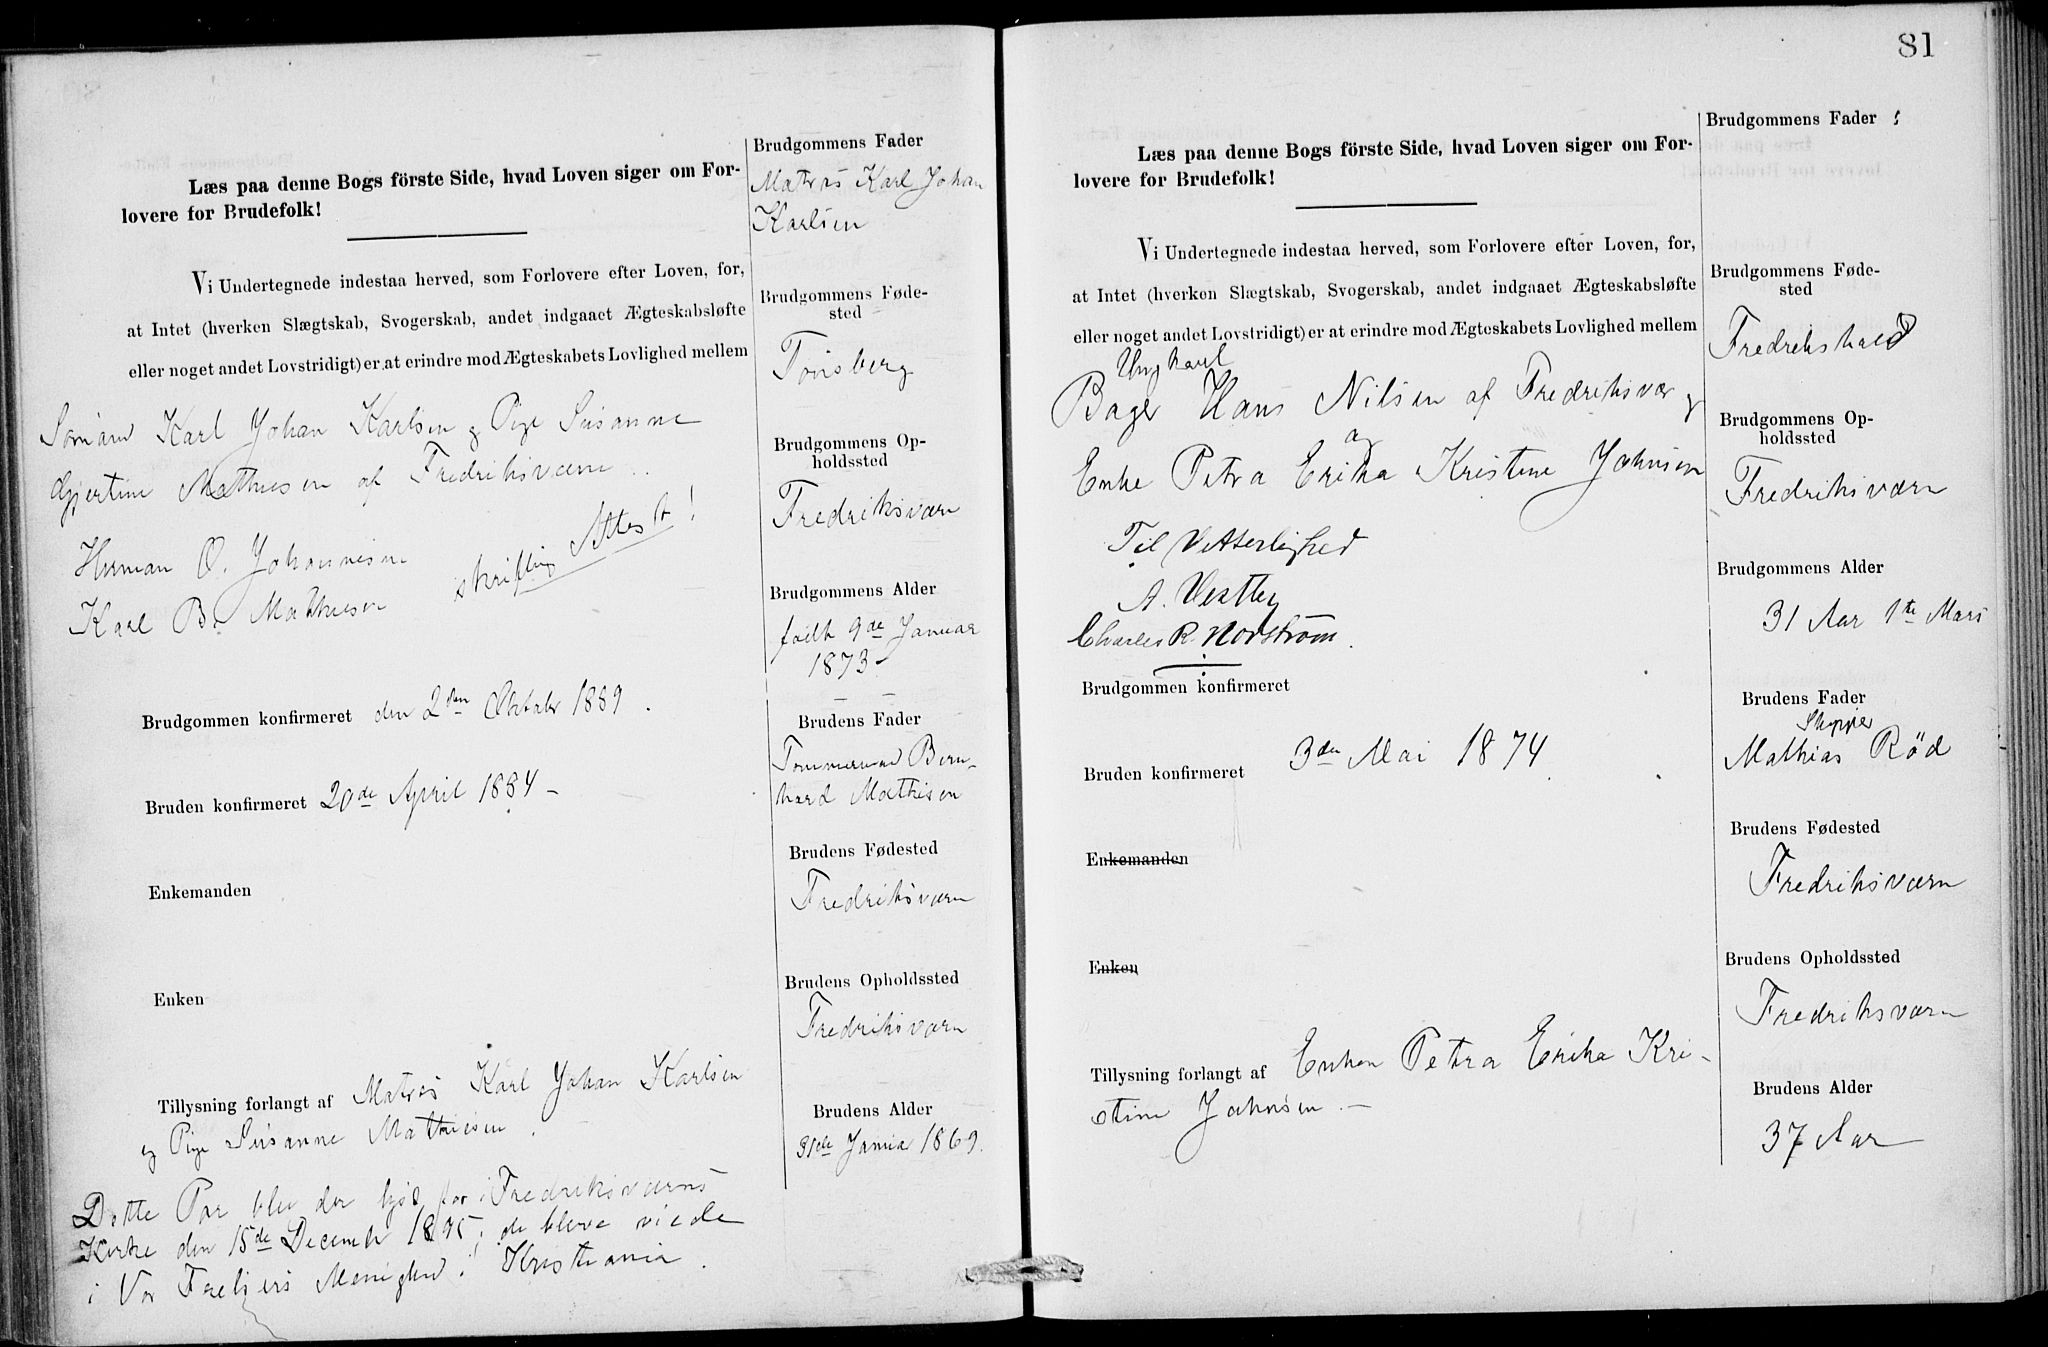 Læs paa denne Bogs förste Side, hvad Loven siger om For-
lovere for Brudefolk!
Vi Undertegnede indestaa herved, som Forlovere efter Loven, for,
at Intet (hverken Slægtskab, Svogerskab, andet indgaaet Ægteskabsløfte
eller noget andet Lovstridigt) er at erindre mod Ægteskabets Lovlighed mellem
Sømand Karl Johan Karlsen og Pige Susanne
Gjertine Mathiesen af Fredriksværn
Herman O. Johannesen
Karl B. Mathiesen
skriftlig Attest!
Brudgommen konfirmeret den 2den Oktober 1889.
Bruden konfirmeret 20de April 1884 –
Enkemanden
Enken
Tillysning forlangt af Matros Karl Johan Karlsen
og Pige Susanne Mathiesen.
Dette Par blev der lyst for i Fredriksværns
Kirke den 15de December 1895; de bleve viede
i Vor Frelsers Menighed! Kristiania.
Brudgommens Fader
Matros Karl Johan
Karlsen
Brudgommens Føde-
sted
Tønsberg
Brudgommens Op-
holdssted
Fredriksværn
Brudgommens Alder
født 9de Januar
1873 –
Brudens Fader
Tømmermand Bern-
hard Mathisen
Brudens Fødested
Fredriksværn
Brudens Opholdssted
Fredriksværn
Brudens Alder
31de Janua 1869.
81
Læs paa denne Bogs förste Side, hvad Loven siger om For-
lovere for Brudefolk!
Vi Undertegnede indestaa herved, som Forlovere efter Loven, for,
at Intet (hverken Slægtskab, Svogerskab, andet indgaaet Ægteskabsløfte
eller noget andet Lovstridigt) er at erindre mod Ægteskabets Lovlighed mellem
Ungkarl
Bager Hans Nilsen af Fredriksvær og
Enke Petra Erika Kristine Johnsen
Til Vitterlighed
A. Vestby
Charles R. Nordstrøm.
Brudgommen konfirmeret
Bruden konfirmeret 3die Mai 1874.
Enkemanden
Enken
Tillysning forlangt af Enken Petra Erika Kri-
stine Johnsen. –
Brudgommens Fader
Brudgommens Føde-
sted
Fredrikshald
Brudgommens Op-
holdssted
Fredriksværn
Brudgommens Alder
31 Aar 1te Mars
Brudens Fader
Skipper
Mathias Rød
Brudens Fødested
Fredriksværn
Brudens Opholdssted
Fredriksværn
Brudens Alder
37 Aar